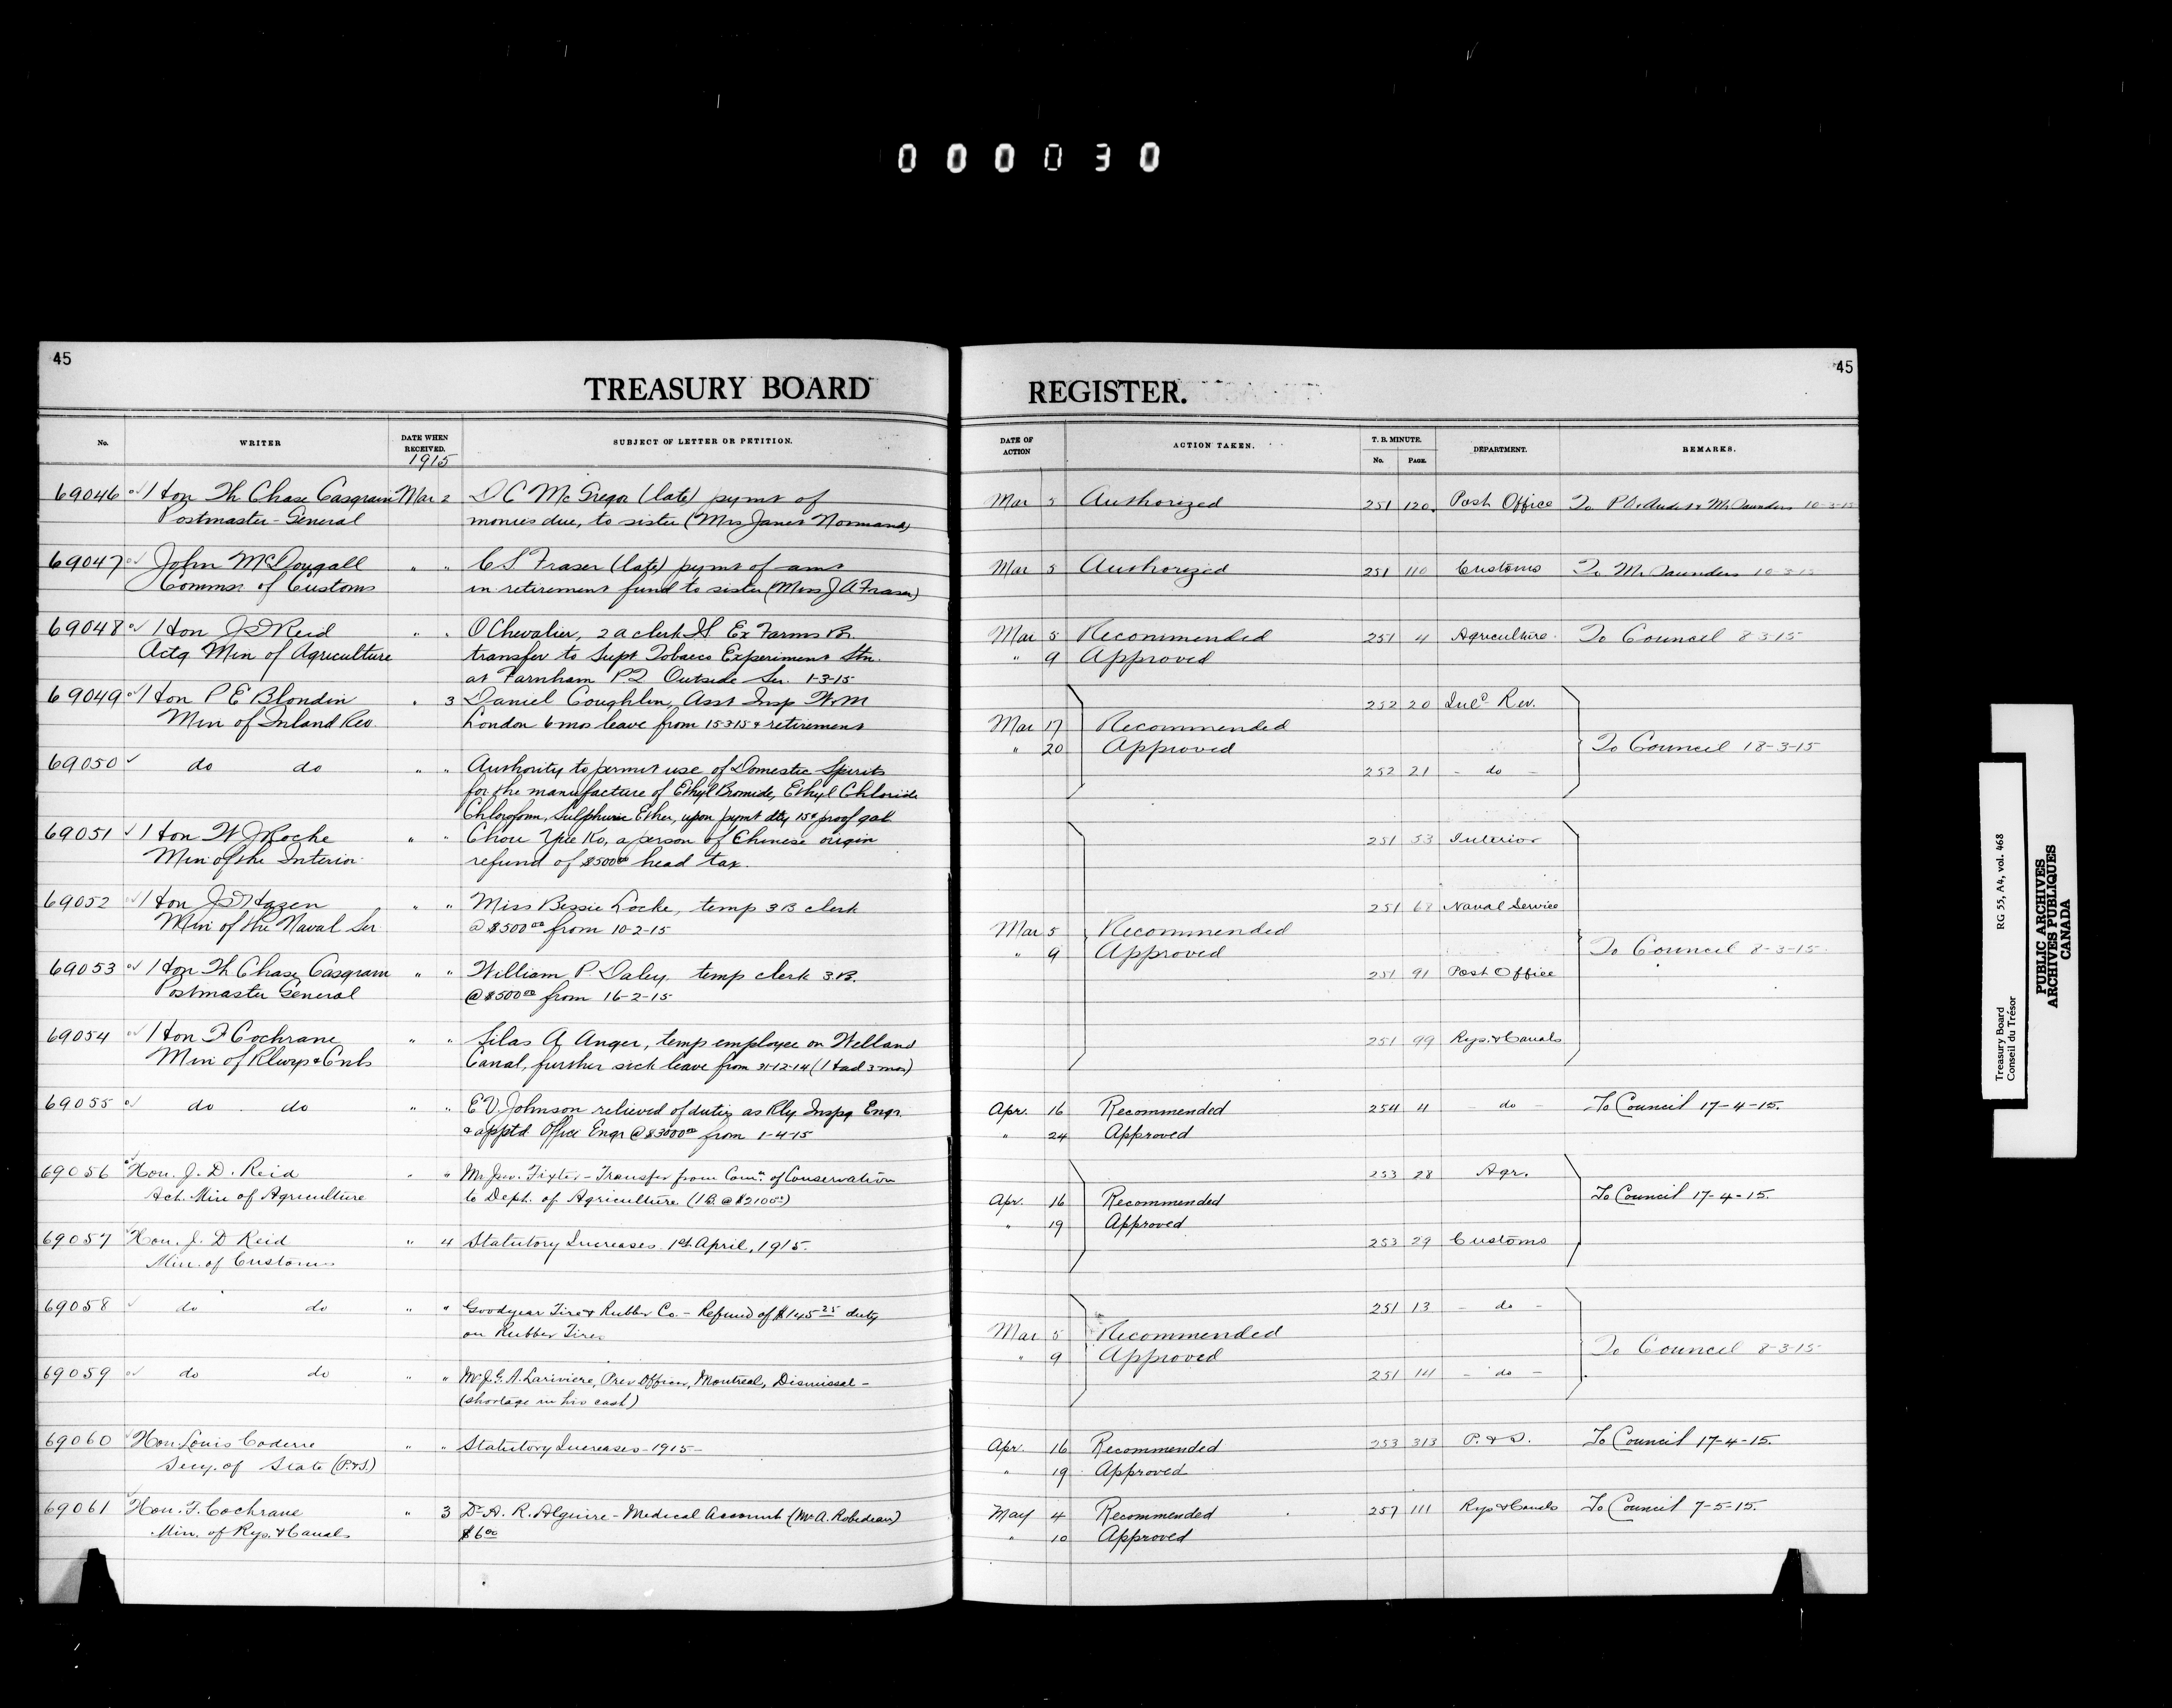 000030
45
TREASURY BOARD
No.
WRITER
DATE WHEN RECEIVED.
1915
SUBJECT OF LETTER OR PETITION.
69046 Hon Th Chase Casgrain Mar 2 D C McGregor (late) pymt of
Postmaster-General monies due, to sister (Mrs Janet Normand)
69047 John McDougall " " C S Fraser (late) pymt of amt
Commsr of Customs in retirement fund to sister (Miss J A Fraser)
69048 Hon J D Reid " " O Chevalier, 2 a clerk Ex Farms Br.
Actg Min of Agriculture transfer to Supt Tobacco Experiment Stn.
at Farnham P.Q Outside Ser. 1-3-15
69049 Hon P E Blondin " 3 Daniel Coughlin, Asst Insp W&M
Min of Inland Rev London 6 mos leave from 15 3 15 & retirement
69050 do do " " Authority to permit use of Domestic Spirits
for the manufacture of Ethyl Bromide, Ethyl Chloride
Chloroform, Sulphuric Ether, upon pymt dty 15¢ proof gal
69051 Hon W J Roche " " Chou Yee Ko, a person of Chinese origin
Min of the Interior refund of $500 00 head tax.
69052 Hon J D Hazen " " Miss Bessie Locke, temp 3 B clerk
Min of the Naval Ser @ $500 00 from 10-2-15
69053 Hon Th Chase Casgrain " " William P. Daley, temp clerk 3 B.
Postmaster General @ $500 00 from 16-2-15
69054 Hon F Cochrane " " Silas A Anger, temp employee on Welland
Min of Rlwys & Cnls Canal, further sick leave from 31-12-14 (Had 3 mos)
69055 do do " " E V. Johnson relieved of duties as Rly Inspg Engr.
& apptd Office Engr @ $3000 00 from 1-4-15
69056 Hon. J. D. Reid " " Mr Jno. Fixter - Transfer from Comn. of Conservation
Act. Min of Agriculture to Dept. of Agriculture (1 B. @ $2100)
69057 Hon. J. D Reid " 4 Statutory Increases 1st April, 1915.
Min. of Customs
69058 do do " " Goodyear Tire & Rubber Co. - Refund of $145 25 duty
on Rubber Tires
69059 do do " " Mr J. G. A. Lariviere, Prev Officer, Montreal, Dismissal -
(shortage in his cash)
69060 Hon. Louis Coderre " " Statutory Increases - 1915 -
Secy. of State (P. & S.)
69061 Hon. F. Cochrane " 3 Dr A. R. Alguire - Medical Account (Mr A. Robideau)
Min. of Rys. & Canals $6 00
45
REGISTER.
DATE OF ACTION
ACTION TAKEN.
T. B. MINUTE.
No. PAGE.
DEPARTMENT.
REMARKS.
Mar 5 Authorized 251 120 Post Office To P O & Mr Saunders 10-3-15
Mar 5 Authorized 251 110 Customs To Mr Saunders 10-3-15
Mar 5 Recommended 251 4 Agriculture To Council 8 3 15
" 9 Approved
252 20 Inld Rev.
Mar 17 Recommended
" 20 Approved To Council 18-3-15
252 21 - do -
251 53 Interior
251 68 Naval Service
Mar 5 Recommended
" 9 Approved To Council 8-3-15
251 91 Post Office
251 99 Rys. & Canals
Apr. 16 Recommended 254 11 do - To Council 17-4-15.
" 24 Approved
253 28 Agr.
Apr. 16 Recommended To Council 17-4-15.
" 19 Approved
253 29 Customs
251 13 - do -
Mar 5 Recommended
" 9 Approved To Council 8-3-15
251 14 - do -
Apr. 16 Recommended 253 313 P. & S. To Council 17-4-15.
" 19 Approved
May 4 Recommended 257 111 Rys & Canals To Council 7-5-15.
" 10 Approved
Treasury Board RG 55, A4, vol. 468
Conseil du Trésor
PUBLIC ARCHIVES
ARCHIVES PUBLIQUES
CANADA